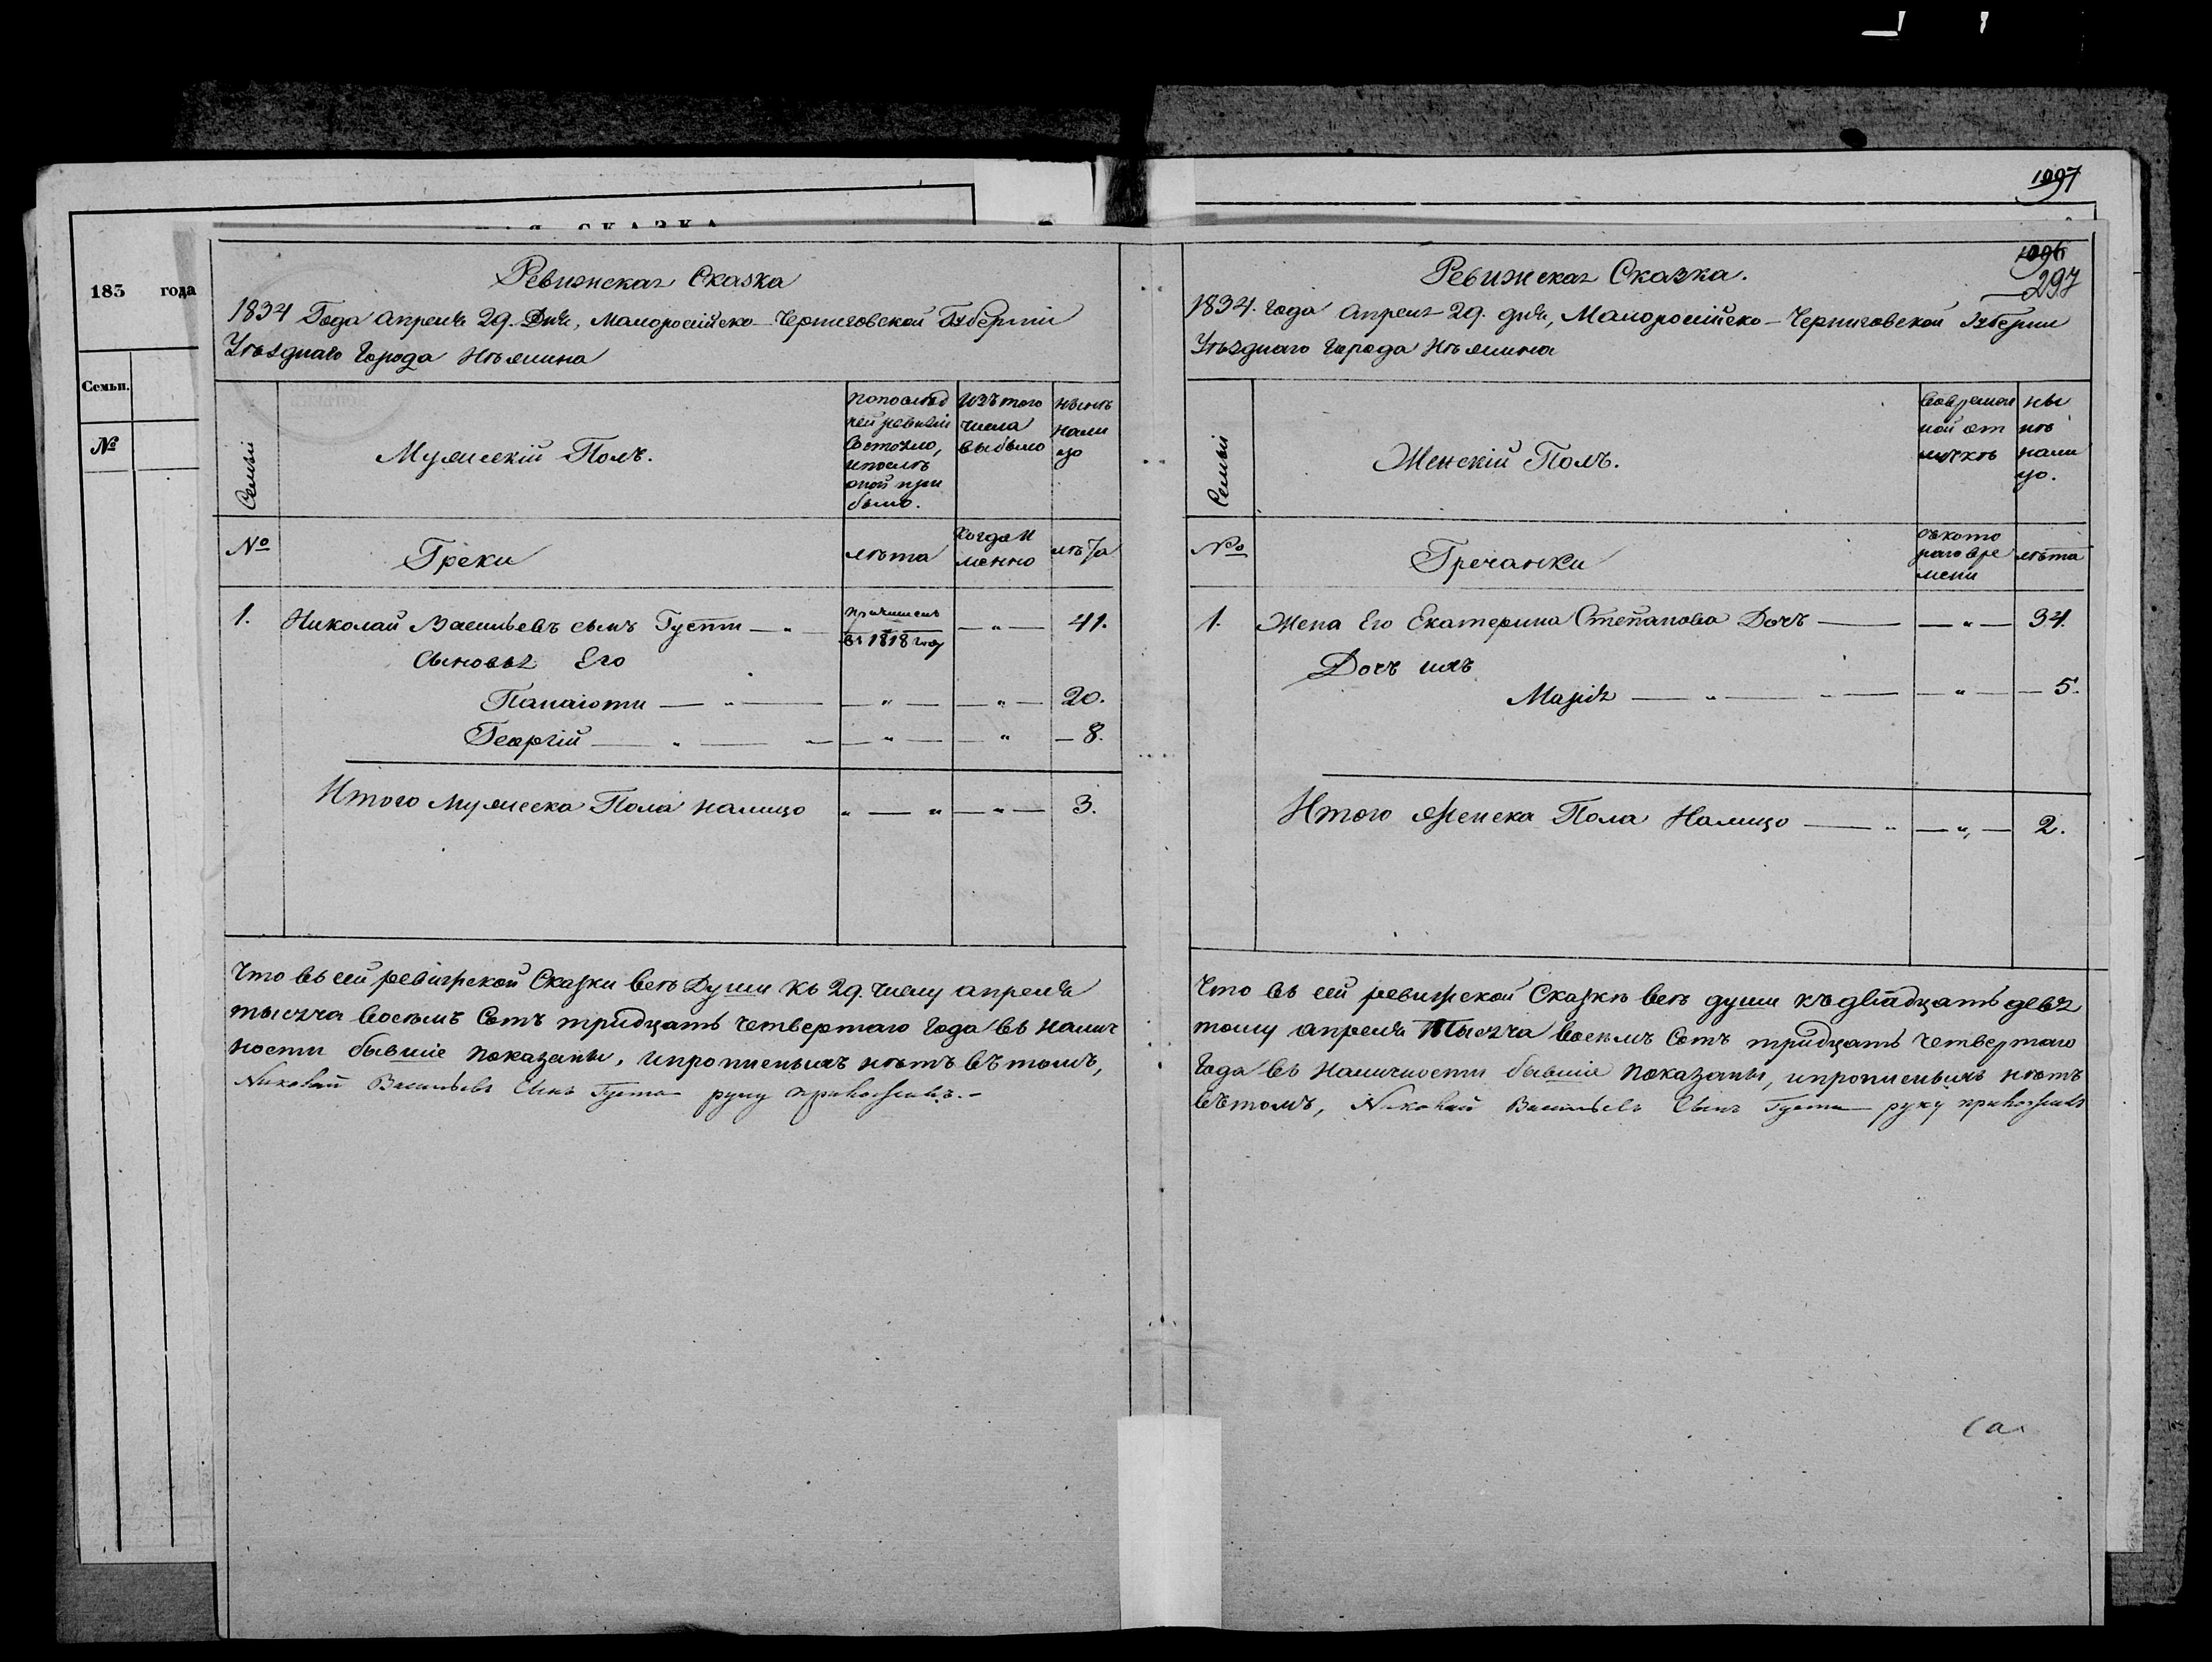 1097
РЕВИЖСКАЯ СКАЗКА
183 года
Семьи.
№
Ревижская Сказка
1834 Года апреля 29. Дня, Малоросійско-Черниговской Губерніи
Уѣзднаго Города Нѣжина
Семьи
Мужескій Полъ.
Попослѣд
ней ревизіи
Состояло,
ипослѣ
оной при
было.
Изъ того
числа
выбыло
Нынѣ
Нали
цо
№
Греки
лѣта
Когда и
менно
лѣта
1. Николай Васильевъ сынъ Густи — „ — причислен в 1818 году — „ — 41.
Сыновья Его
Панаіоти — „ — — „ — — „ — 20.
Георгій — „ — „ — „ — — „ — 8.
Итого Мужеска Пола налицо „ — „ — „ — 3.
Что въ сей ревижской Сказки всѣ Души къ 29. числу апреля
тысяча восемъ Сотъ тридцать четвертаго Года въ налич
ности бывшіе показаны, ипрописныхъ нѣтъ вътомъ,
Николай Васильевъ Синъ Густи руку приложилъ.-
1096
297
Ревижская Сказка.
1834. года Апреля 29. дня, Малоросійско-Черниговской Губерни
Уѣзднаго Города Нѣжина
Семьи
Женскій Полъ.
Вовремен
ной от
лучкѣ
ны
нѣ
нали
цо.
№
Гречанки
Съкото
раго вре
мени
лѣта
1. Жена Его Екатерина Степанова Дочъ — — „ — 34.
Дочъ ихъ
Марія — „ — — — — „ — — 5.
Итого Женска Пола Налицо — „ — „ — 2.
Что въ сей ревижской Сказкѣ всѣ души къ двадцать девя
тому апреля Тысяча восемъ Сотъ тридцать четвертаго
Года въ Наличности бывшіе показаны, ипрописныхъ нѣтъ
вътомъ, Николай Васильевъ Сынъ Густи руку приложилъ